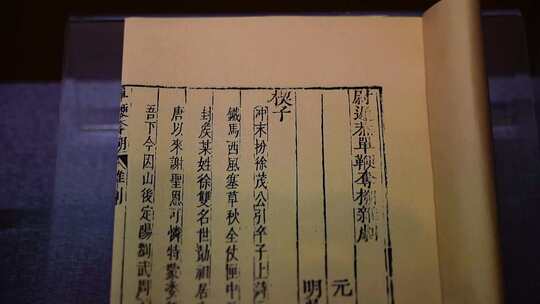 尉遲恭單鞭奪槊雜劇
元
明
楔子
沖末扮徐茂公引卒子上詩
鐵馬西風塞草秋全仗匣中
封侯某姓徐雙名世勣祖居
唐以來謝聖恩可憐特蒙委
吾下今因山後定陽劉武周